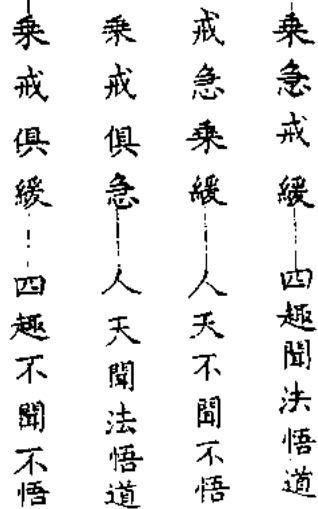 乗急戒緩——四趣聞法悟道
戒急乗緩——人天不聞不悟
乗戒俱急——人天聞法悟道
乗戒俱緩——四趣不聞不悟